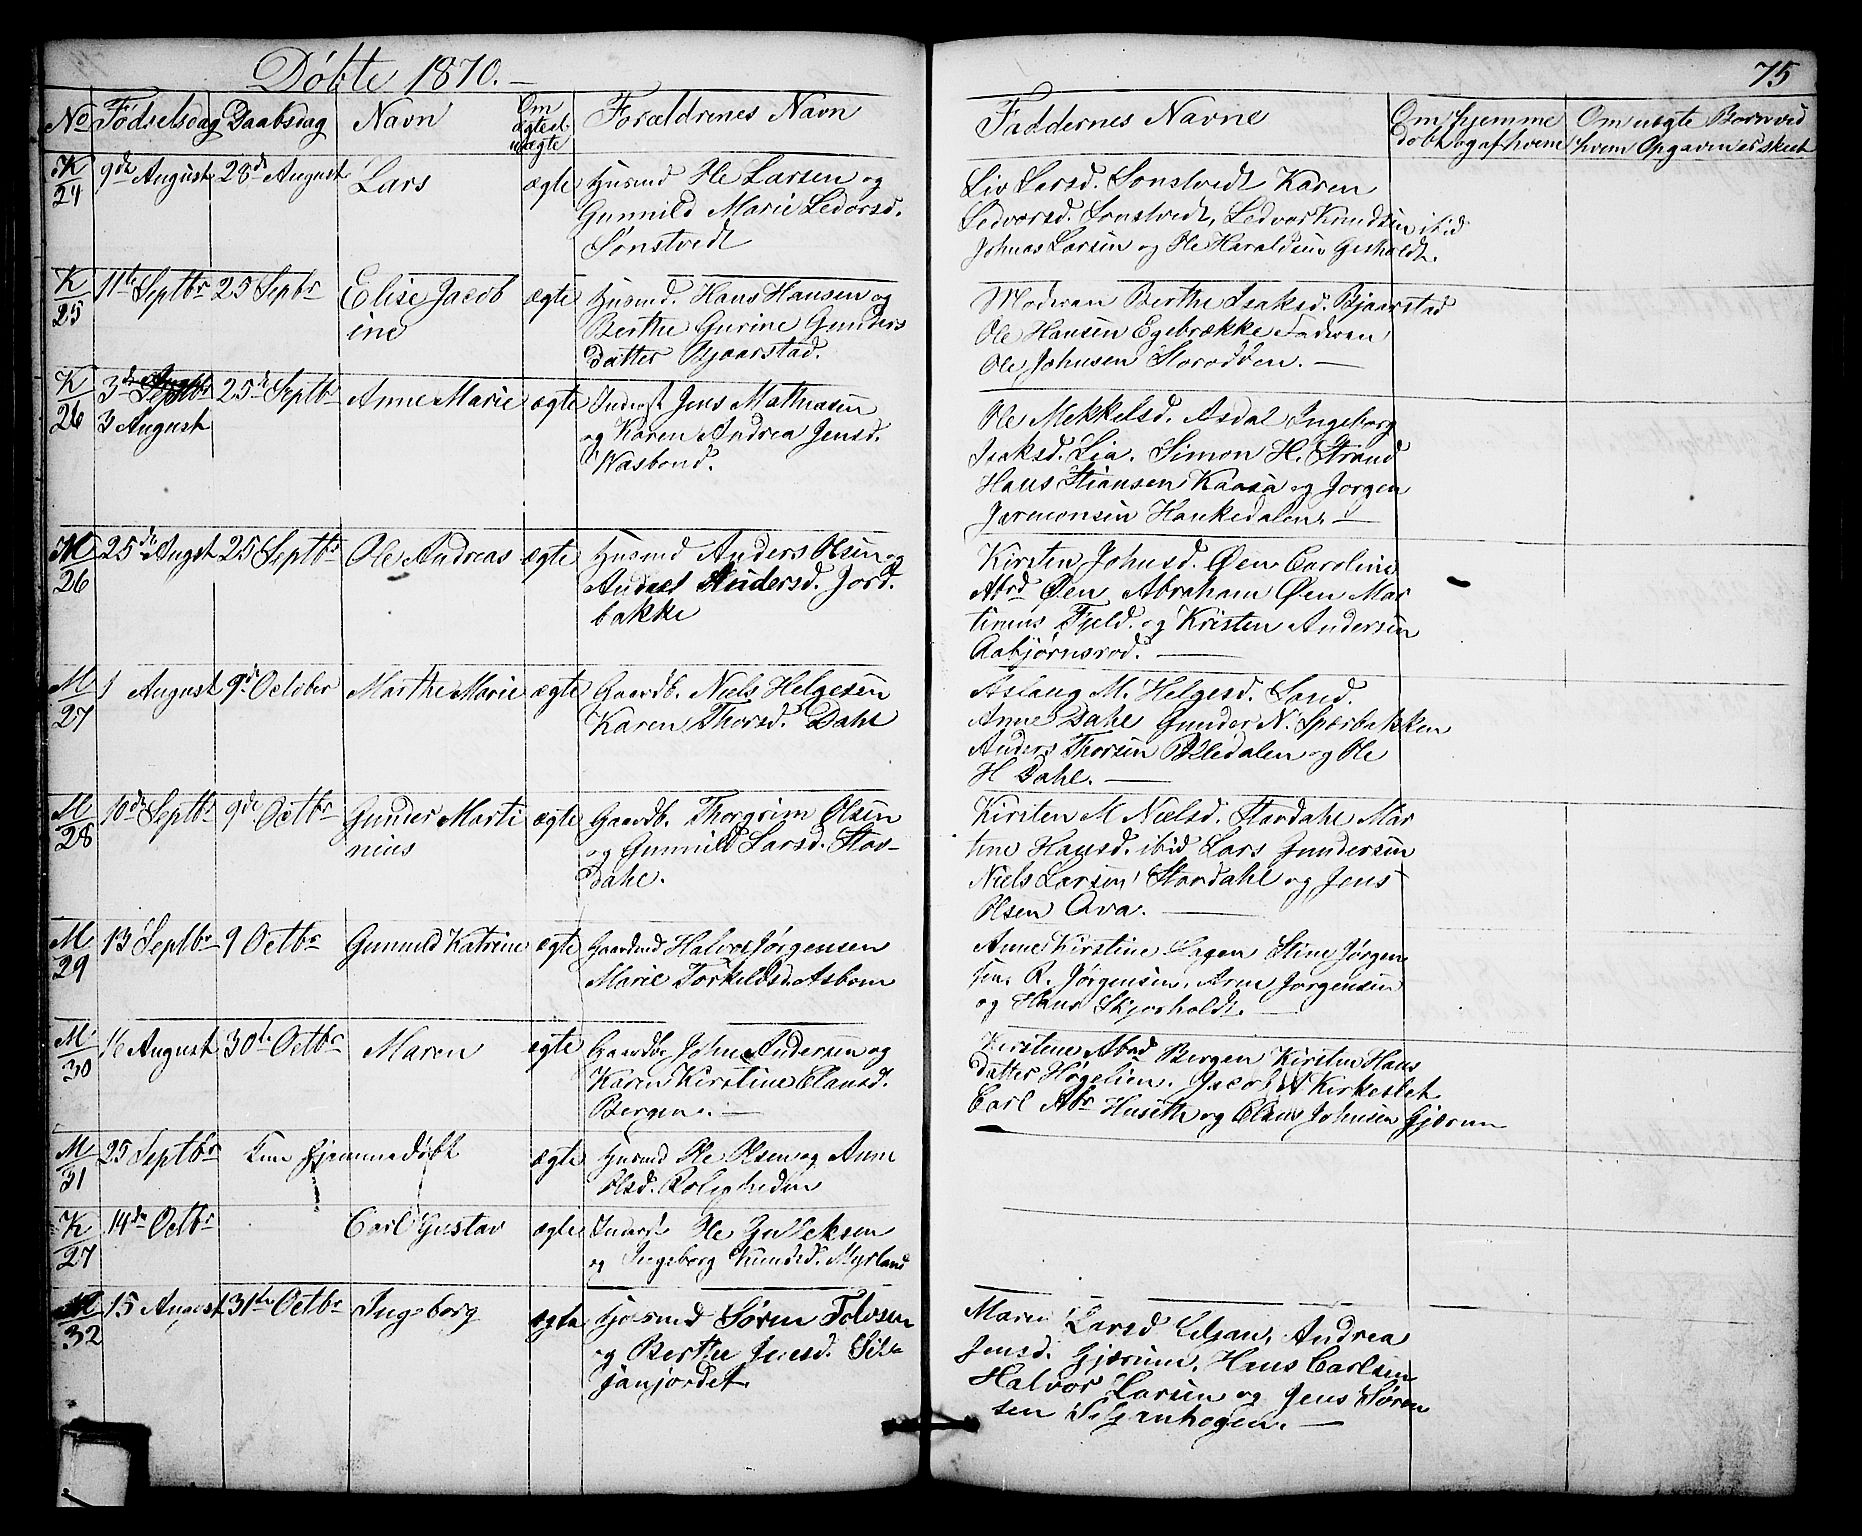 Døbte 1870.—
75
No Fødselsdag Daabsdag Navn Om ægte el. uægte Forældrenes Navn Faddernes Navne Om hjemme døbt og af hvem Om uægte Børn ved hvem Opgaven er skeet
K 24 9de August 28de August Lars ægte Husmd Ole Larsen og
Gunnild Marie Ledorsd.
Sønstvedt
Liv Larsd. Sonstvedt Karen
Ledvorsd. Sonstvedt, Ledvor Knudsen ibid
Johnas Larsen og Ole Haraldsen Gisholdt.
K 25 11te Septbr 25 Sepbr Elise Jacob
ine
ægte Husmd. Hans Hansen og
Berthe Gurine Gunders
datter Bjaarstad.
Moderen Berthe Isaksd. Bjaarstad
Ole Hansen Egebrække Faderen
Ole Johnsen Storodden. —
K 26 3de Septbr 25de Septbr Anne Marie ægte Inderst Jens Mathiasen
3 August
og Karen Andrea Jensd.
Wasbond.
Ole Mekkelsd. Asdal Ingeborg
Isaksd. Lia. Simon H. Strand
Hans Stiansen Kaasa og Jorgen
Jørmonsen Haukedalen. —
M 26 25de Augst 25 Septbr Ole Andreas ægte Husmd Anders Olsen og
Andrea Andersd. Jord.
bakke
Kirsten Johnsd. Øen Caroline
Abrd Øen Abraham Øen Mar
tinius Fjeld. og Kristen Andersen
Aabjørnsrød. —
M 27 1 August 9de October Marthe Marie ægte Gaardb. Niels Helgesen
Karen Thorsd. Dahl
Aslaug M. Helgesd. Sand.
Anne Dahl Gunder N. Sperbakken
Anders Thorsen Bledalen og Ole
H Dahl. —
M 28 10de Septbr 9de Octbr Gunder Marti
nius
ægte Gaardb. Thorgrim Olsen
og Gunnild Larsd. Stor-
dahl.
Kirsten M Nielsd. Stordahl Mar
tine Hansd. ibid Lars Gundersen
Niels Larsen Stordahl og Jens
Olsen Ora. —
M 29 13 Septbr 9 Octbr Gunnild Katrine ægte Gaardmd Halvor Jørgensen
Marie Torkildsd. Asbom
Anne Kirstine Stine Jørgen
sen. R. Jørgensen. Aren Jørgensen
og Hans Skjorholdt. —
M 30 16 August 30te Octbr Maren ægte Gaardb. John Andersen og
Karen Kirstine Clausd.
Bergen. —
Kirstine Abrd Bergen Kirsten Hans
datter Høgelien. Jacob A Kirkeslet
Carl Abr Huseth og Claus Johnsen Gjerum
M 31 25 Septbr Kun Hjemmedøbt ægte Husmd Ole Olsen og Anne
Olsd. Roligheden
K 27 14de Octbr Carl Gustav ægte Inderst Ole Gulleksen
og Ingeborg Knudsd. Myrland
M 32 15 August 31te Octbr Ingeborg ægte Husmd Søren Tolvsen
og Berthe Jensd. Sil-
janjordet
Maren Larsd Siljan. Andrea
Jensd. Gjerum. Hans Carlsen
Halvor Larsen og Jens Søren
sen Siljanhogen. —